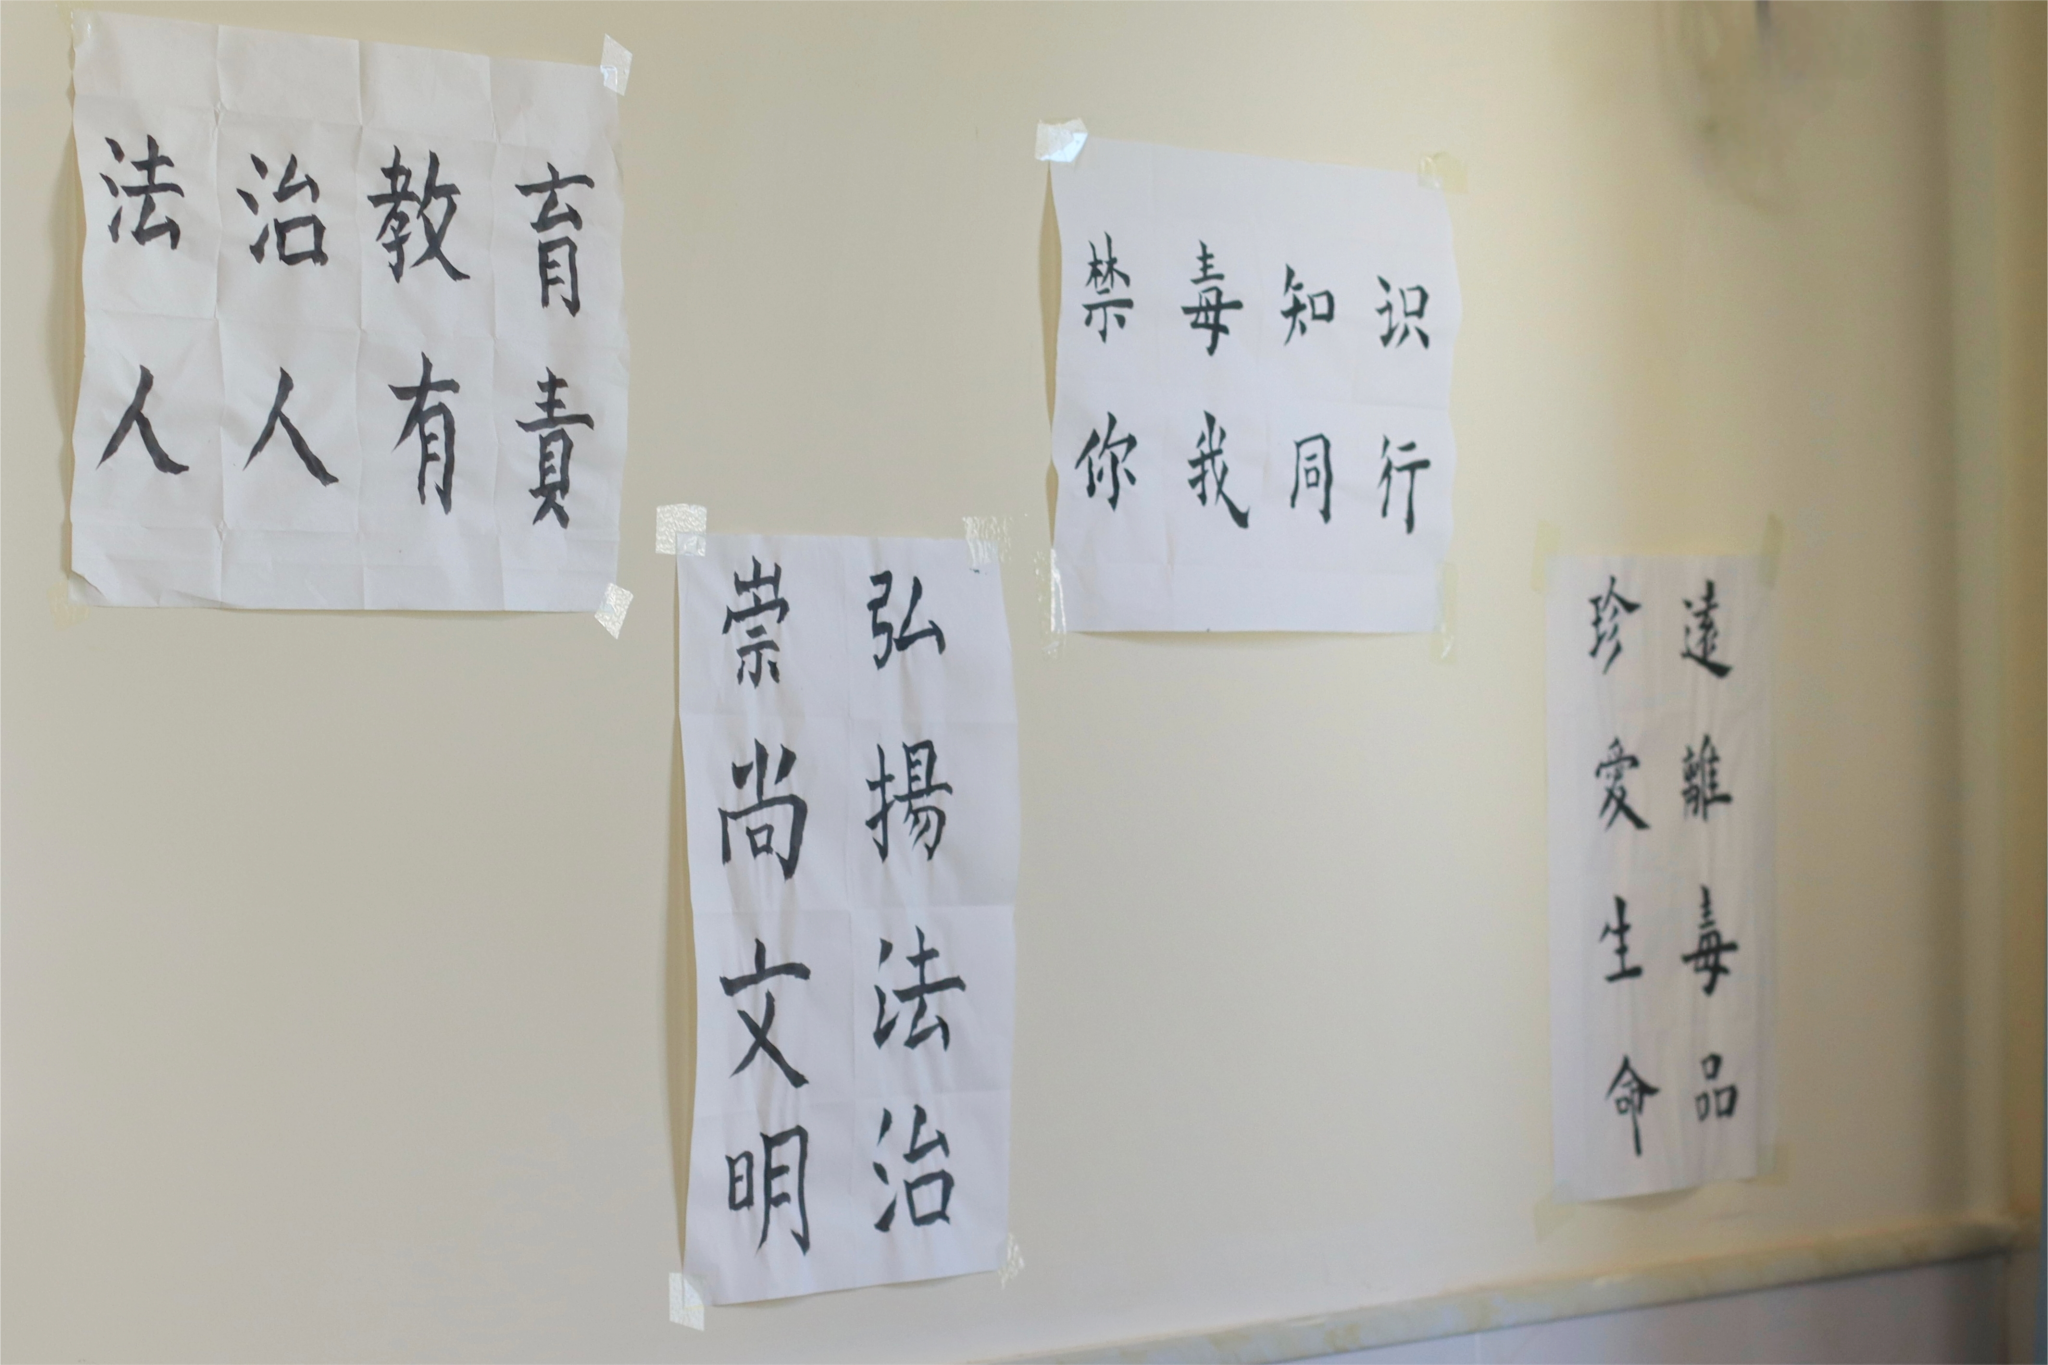 法治教育
人人有責
弘揚法治
崇尚文明
禁毒知识
你我同行
遠離毒品
珍愛生命